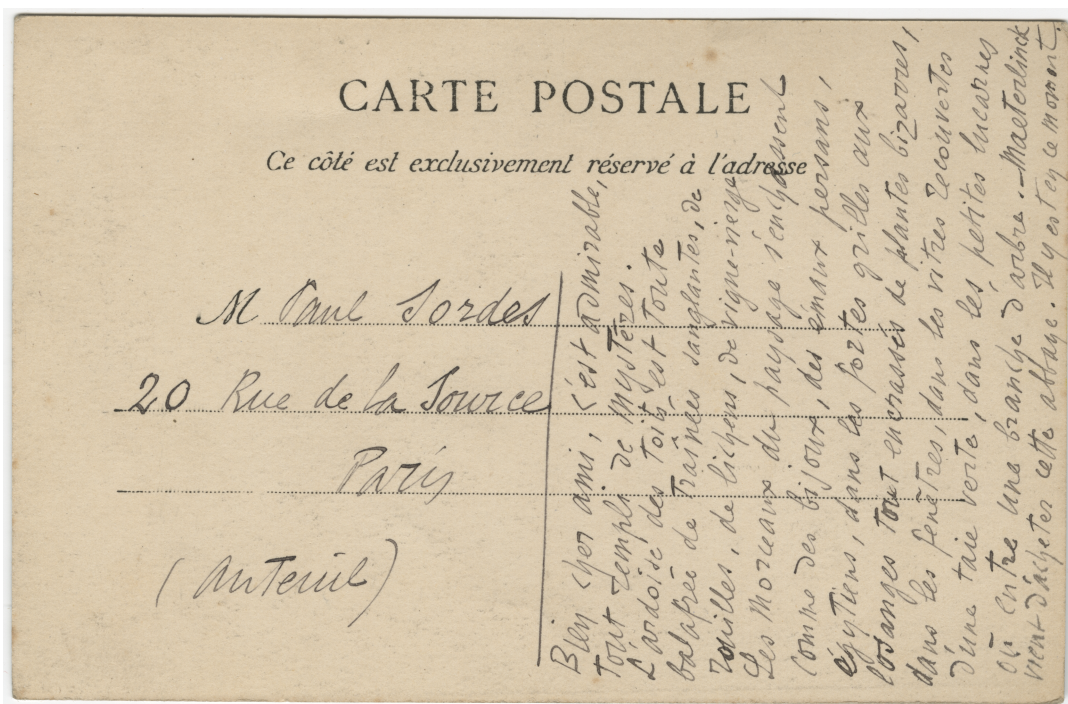 CARTE POSTALE
Ce côté est exclusivement réservé à l'adresse
M Paul Sordes
20 Rue de la Source
Paris
(Auteuil)
Bien cher ami, c'est admirable,
tout rempli de mystères.
L'ardoise des toits est toute
balafrée de traînées sanglantes, de
rouilles, de lichens, de vigne-vierge
Les morceaux du paysage s'enchassent
comme des bijoux, des émaux persans,
égyptiens, dans les portes grilles aux
losanges tout encrassés de plantes bizarres,
dans les fenêtres, dans les vitres recouvertes
d'une taie verte, dans les petites lucarnes
où entre une branche d'arbre. - Maeterlinck
vient d'acheter cette abbaye. Il y est en ce moment.